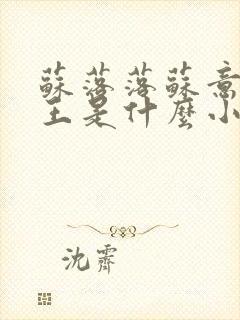 蘇落落蘇意
主是什麼小
沈霽